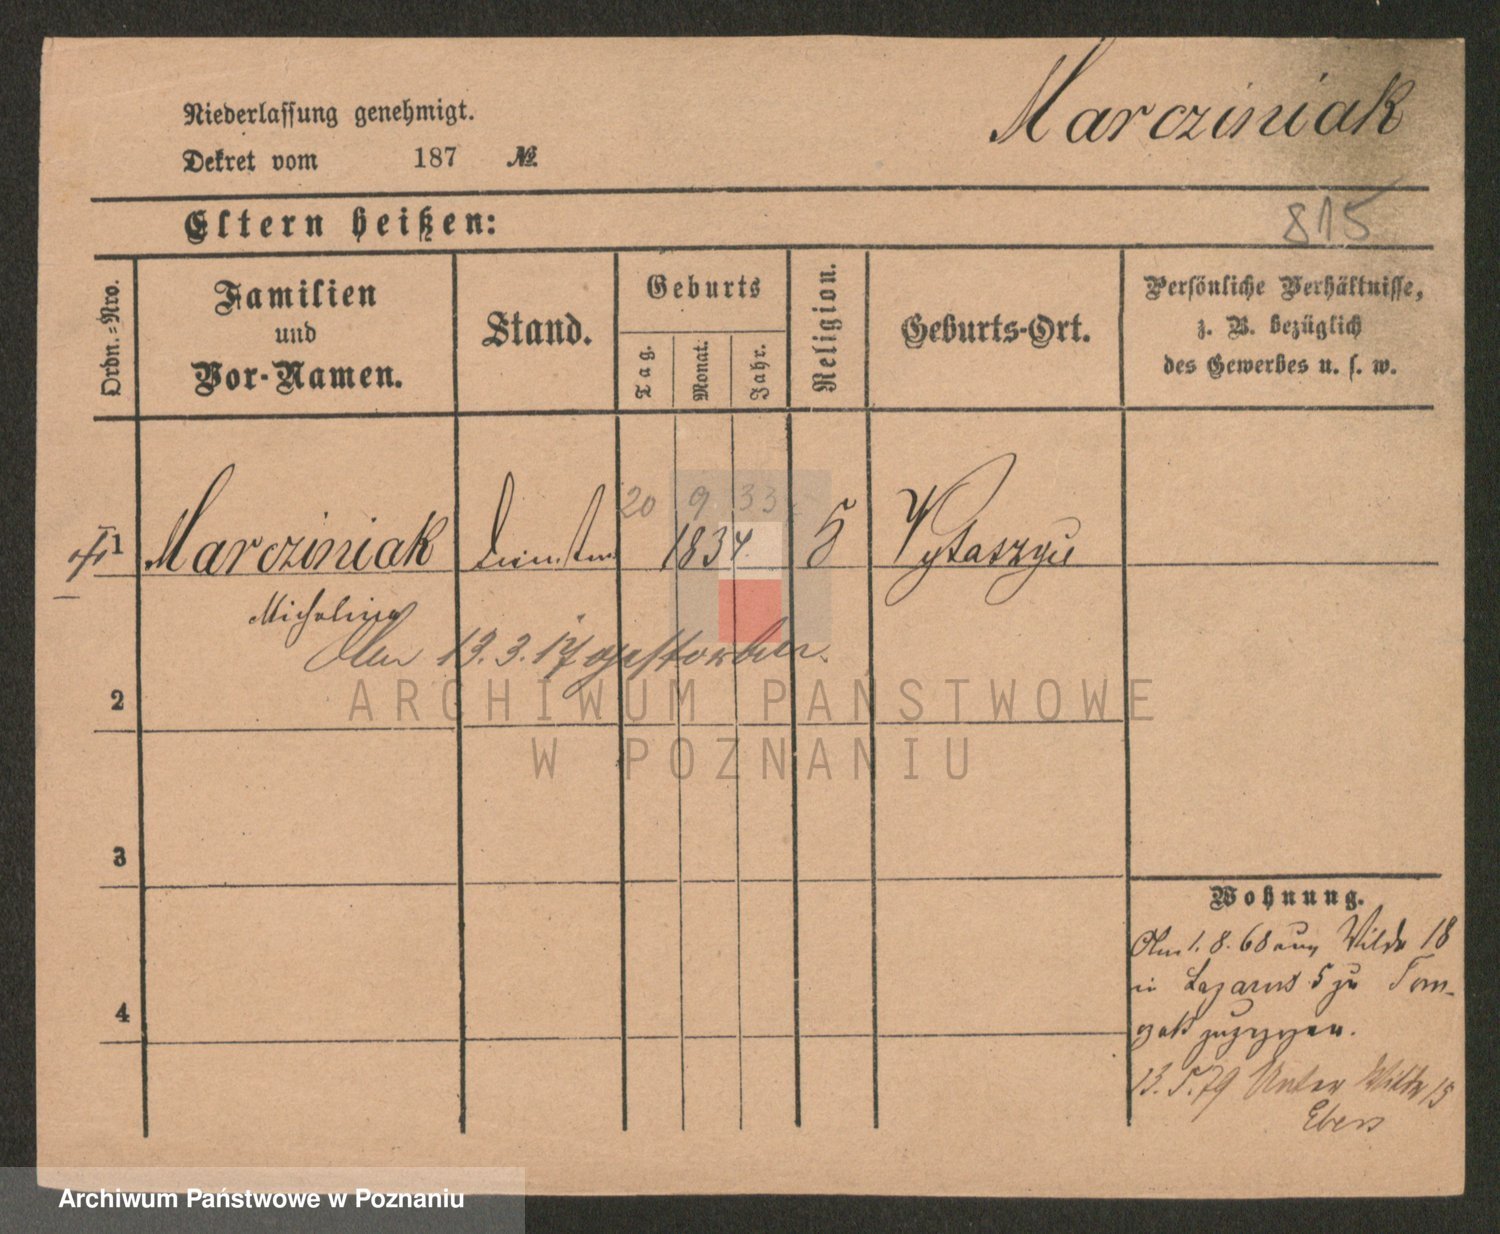 Marcziniak
Niederlassung genehmigt.
Dekret vom 187 №
Eltern heißen:
815
Ordn.=Nro.
Familien
und
Vor-Namen.
Stand.
Geburts
Tag.
Monat.
Jahr.
Religion.
Geburts-Ort.
Persönliche Verhältnisse,
z. B. bezüglich
des Gewerbes u. s. w.
20 9 33
1 Marcziniak 1834.
Michalina
Am 13.3.17 gestorben.
2
ARCHIWUM PAŃSTWOWE
W POZNANIU
3
Wohnung.
1. 8. 68 Wilda 18
in Lazarus 5 zu Tom-
4
13. 5. 79 Unter Wilda 15
Archiwum Państwowe w Poznaniu